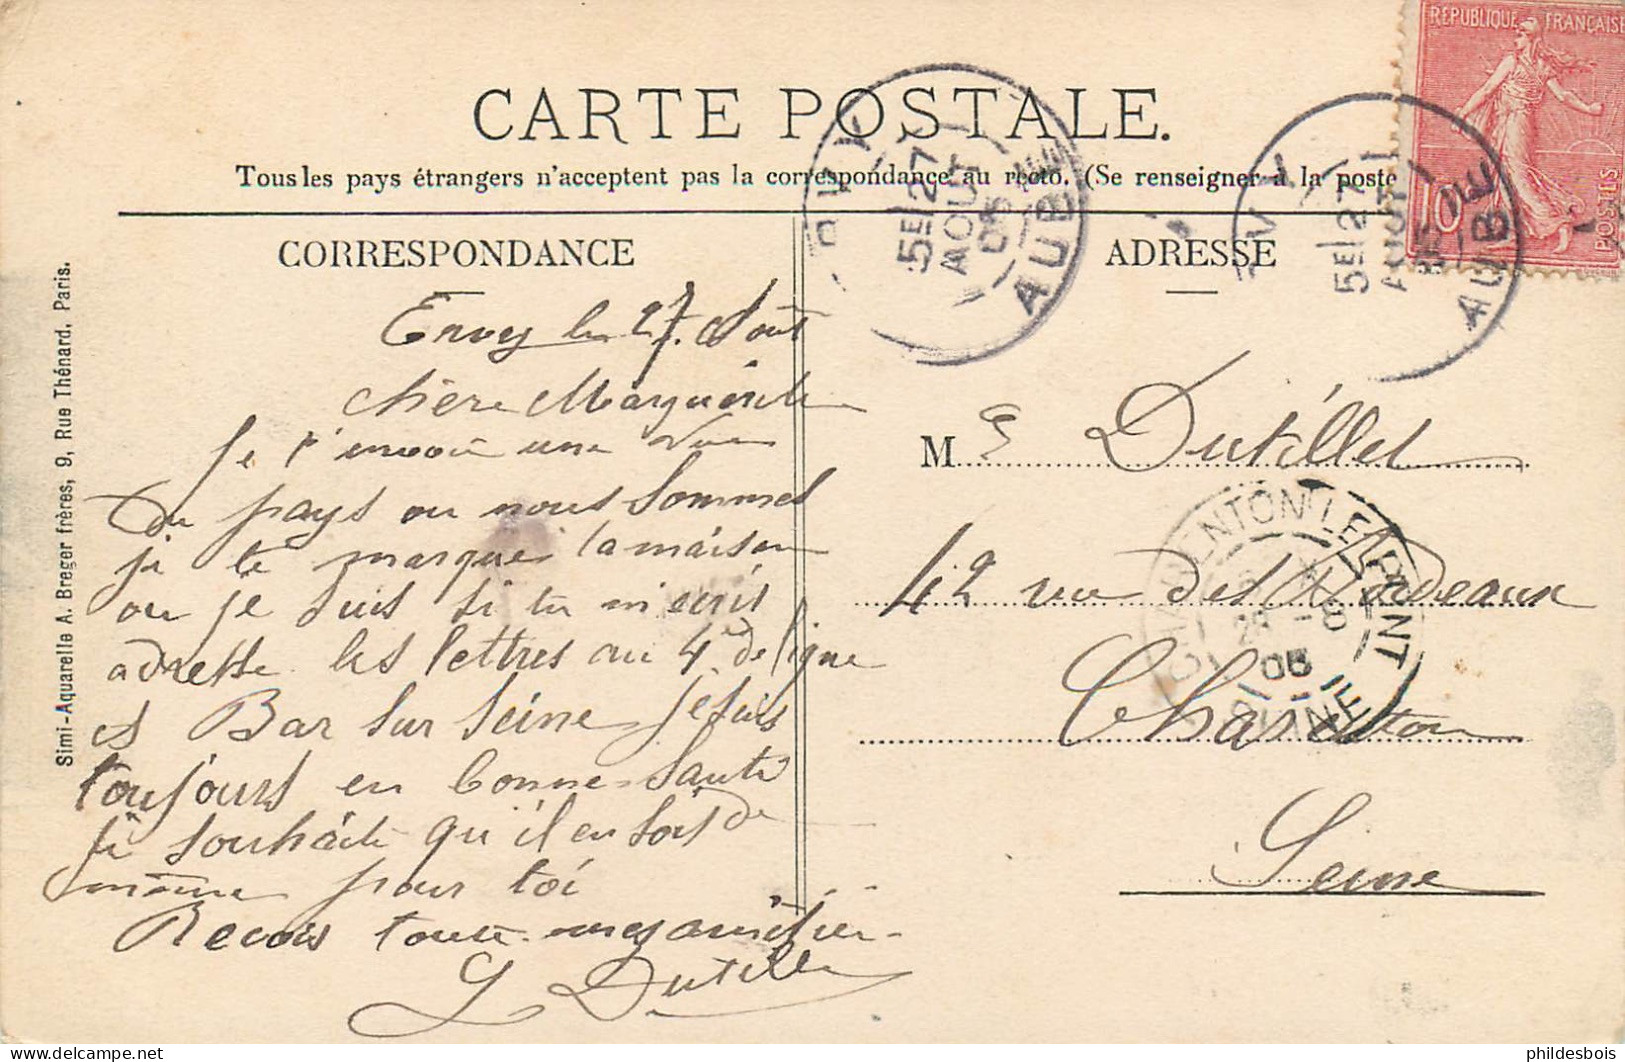 CARTE POSTALE.
Tous les pays étrangers n'acceptent pas la correspondance au recto. (Se renseigner à la poste
CORRESPONDANCE
Ervy le 27. Aout
chère Marguerite
Je t'envoie une vue
du pays ou nous sommes
je te marque la maison
ou je suis si tu m'ecris
adresse les lettres au 4e de ligne
Bar sur Seine je suis
toujours en bonne Santé
je souhaite qu'il en soit de
même pour toi
Recois toute mes amitier
Dutillet
ADRESSE
M e Dutillet
42 rue des Bordeaux
Charenton
Seine
REPUBLIQUE FRANÇAISE
10
POSTES
ERVY
5E 27
AOUT
05
AUBE
5E 27
AOUT
05
AUBE
CHARENTON LE PONT
05
SEINE
Simi-Aquarelle A. Breger frères, 9, Rue Thénard, Paris.
https://www.delcampe.net
phildesbois